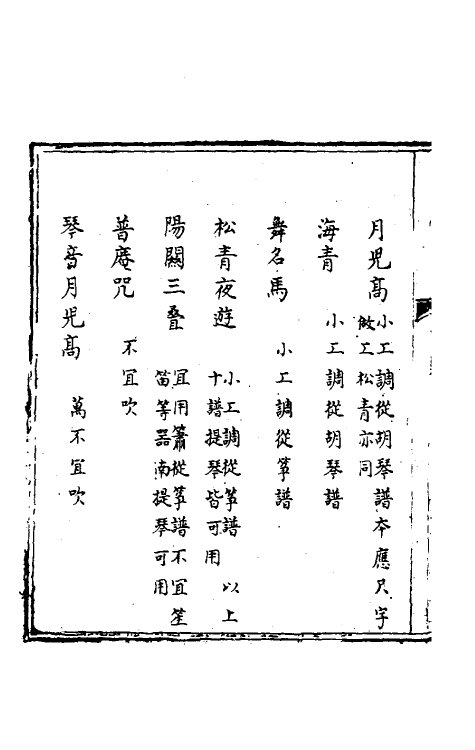 月児髙 小工調從胡琴譜本應尺字
做工松青亦同
海青 小工調從胡琴譜
舞名馬 小工調從箏譜
松青夜遊 小工調從箏譜 以上
十譜提琴皆可用
陽關三叠 宜用簫從箏譜不宜笙
笛等器南提琴可用
普庵咒 不宜吹
琴音月児髙 萬不宜吹